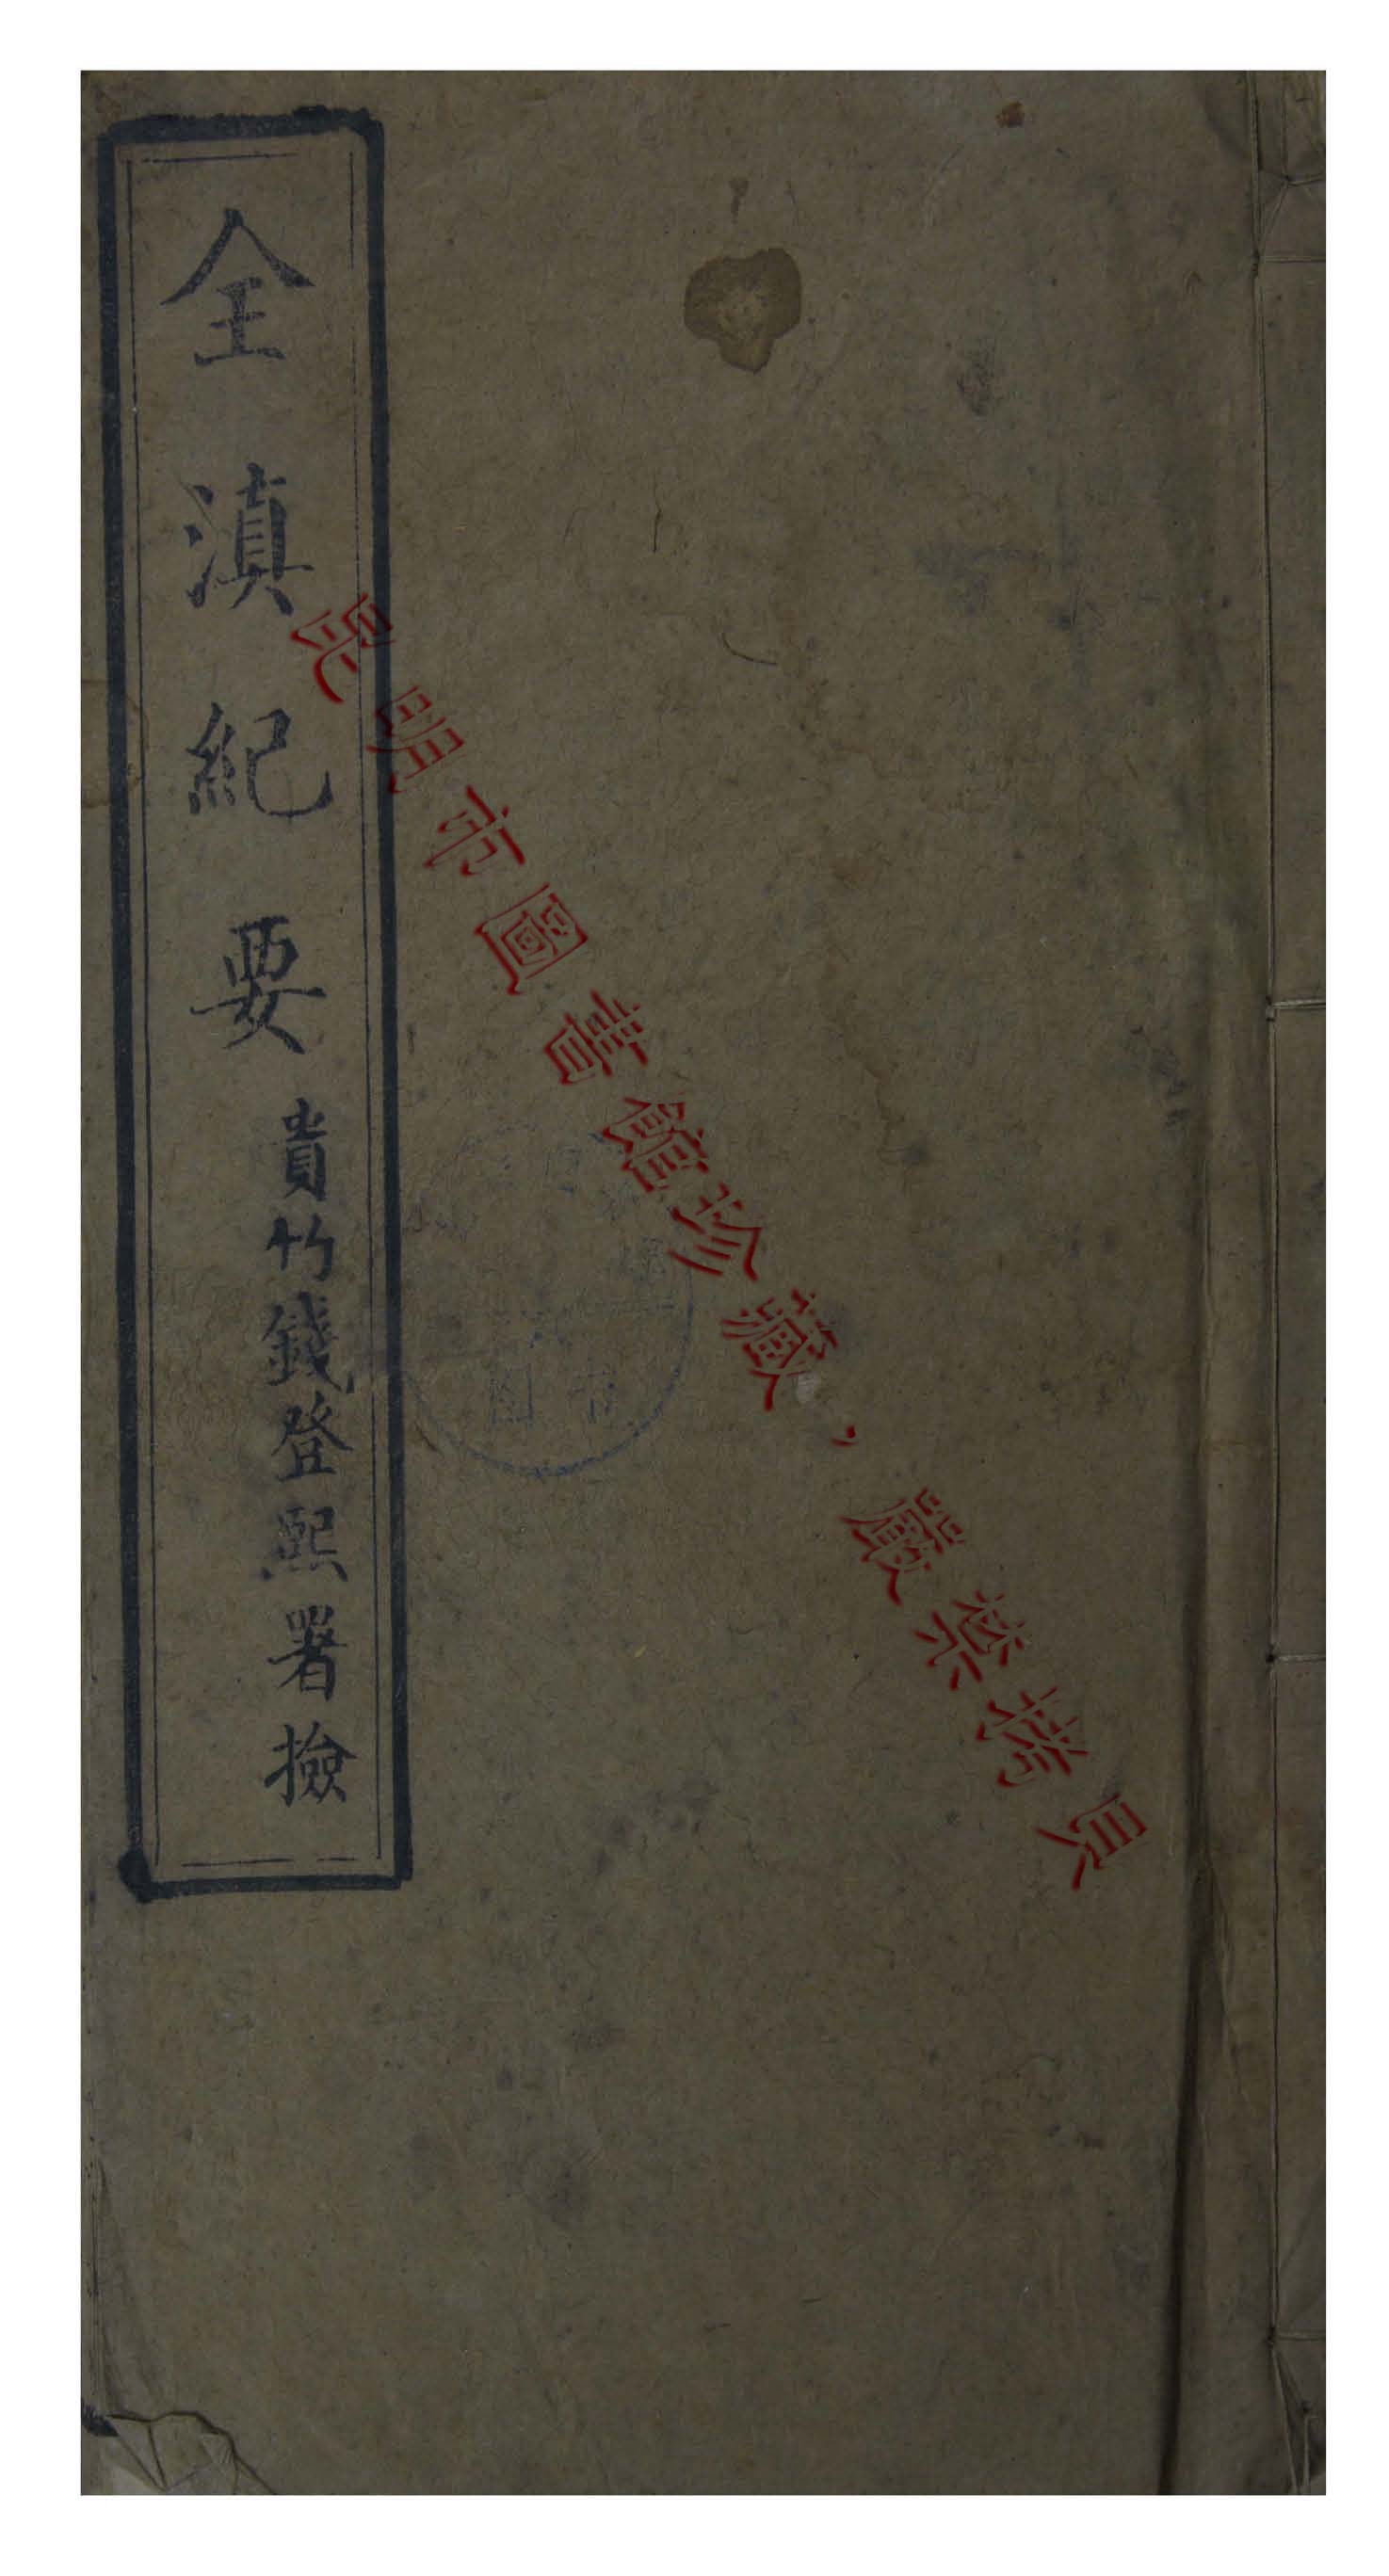 全滇紀要
貴竹錢登熙署檢
昆明市圖書館珍藏，嚴禁拷貝